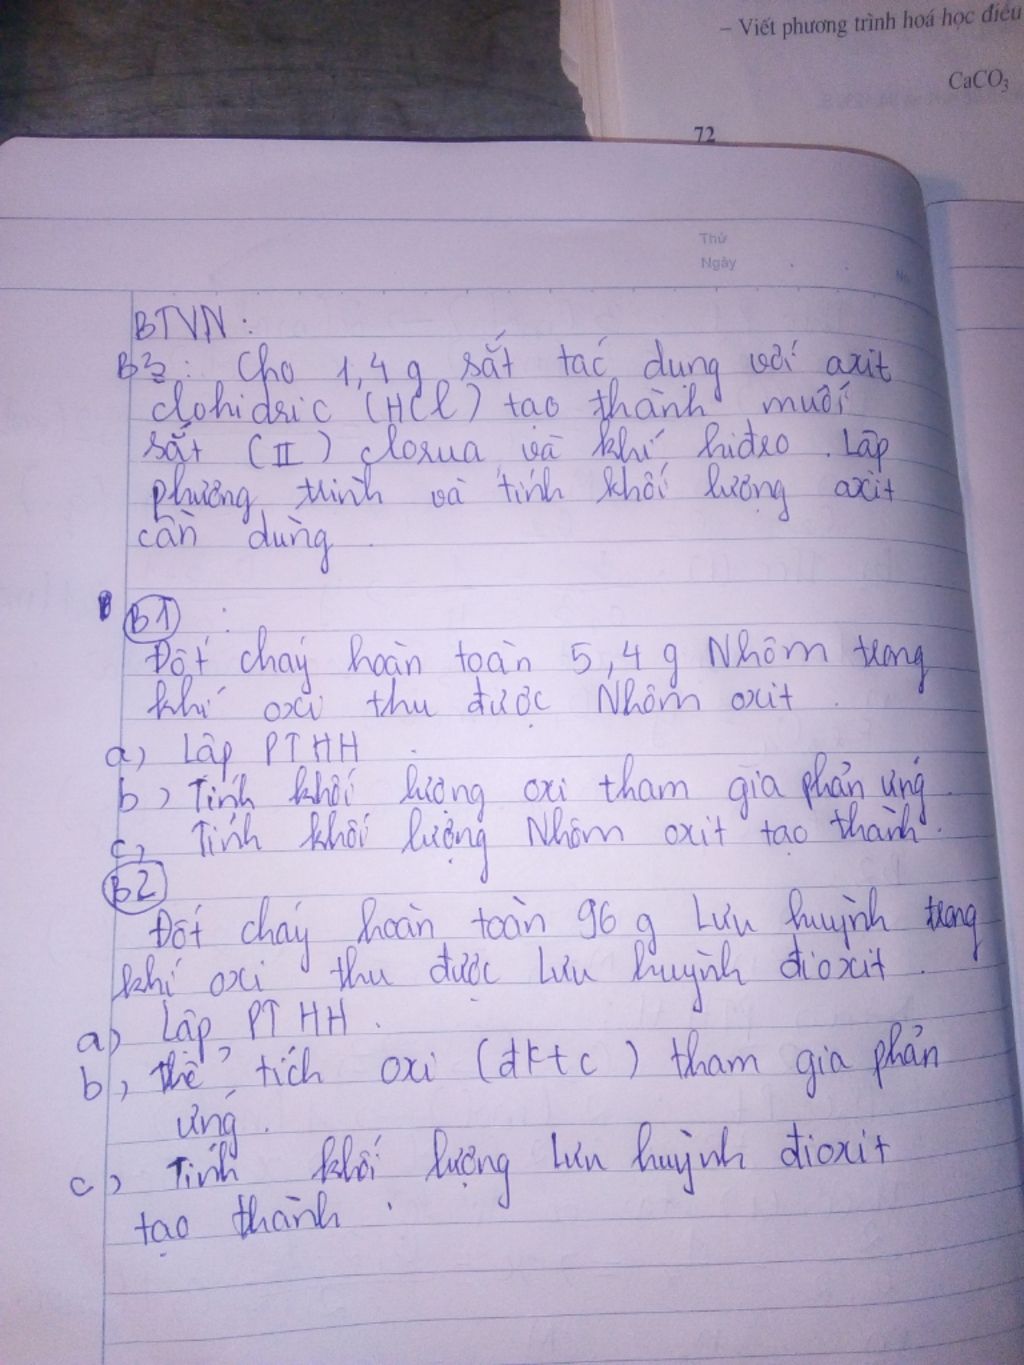 – Viết phương trình hoá học điều
CaCO₃
72
Thứ
Ngày
BTVN :
B3 : Cho 1,4 g sắt tác dung với axit
clohidric (HCl) tạo thành muối
sắt (II) clorua và khí hiđro . Lập
phương trình và tính khối lượng axit
cần dùng .
B1 :
Đốt cháy hoàn toàn 5,4 g Nhôm trong
khí oxi thu được Nhôm oxit .
a) Lập PTHH .
b) Tính khối lượng oxi tham gia phản ứng .
c) Tính khối lượng Nhôm oxit tạo thành .
B2
Đốt cháy hoàn toàn 96 g Lưu huỳnh trong
khí oxi thu được Lưu huỳnh đioxit .
a) Lập PTHH .
b) thể tích oxi (đktc) tham gia phản
ứng .
c) Tính khối lượng Lưu huỳnh đioxit
tạo thành .